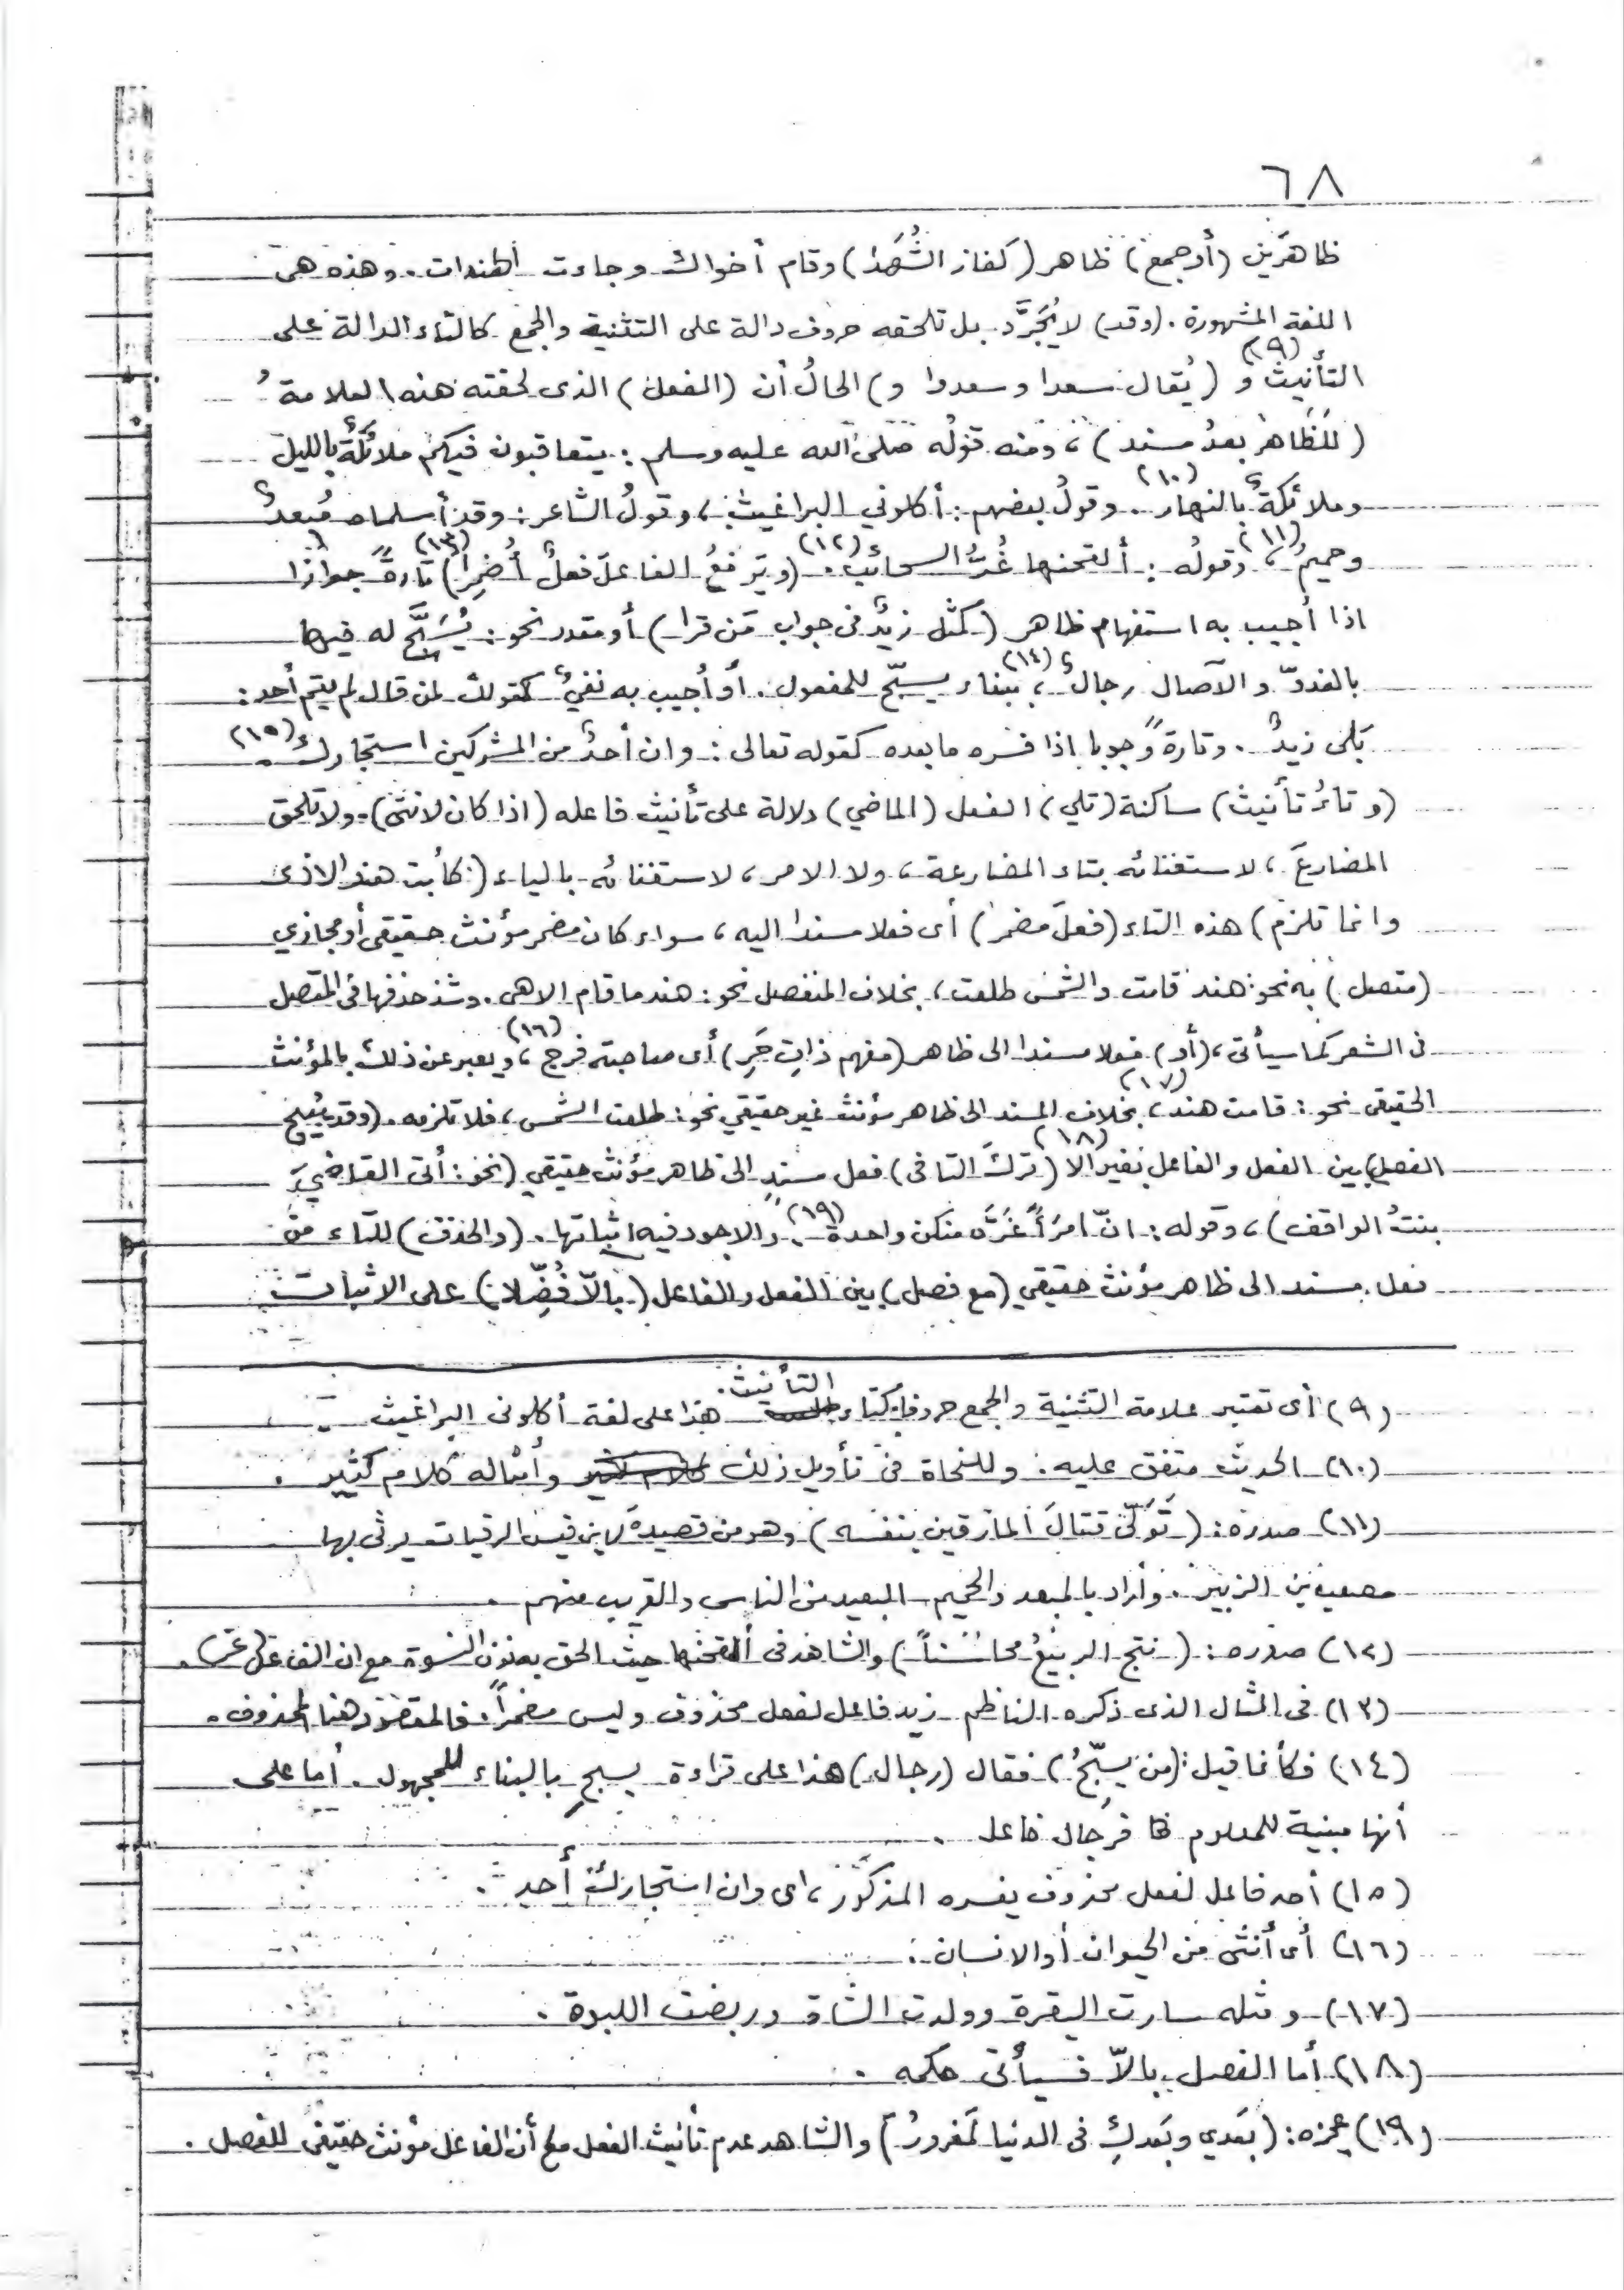 ٦٨
ظاهرَين (أو جمع) ظاهر (كفاز الشُّهَدا) وقام أخواك وجاءت الهندات. وهذه هى
اللغة المشهورة. (وقد) لا يُجَرَّد بل تلحقه حروف دالة على التثنية والجمع كالتاء الدالة على
التأنيث (٩) و (يُقال سعدا وسعدوا و) الحالُ أن (الفعل) الذى لحقته هذه العلامةُ
(للظاهر بعدُ مسند) ، ومنه قولُه صلى الله عليه وسلم : يتعاقبون فيكم ملائكةٌ بالليل
وملائكةٌ بالنهار (١٠) . وقولُ بعضهم : أكلوني البراغيث ، وقولُ الشاعر : وقد أسلماه مُبعدٌ
وحميمُ (١١) ، وقولُه : ألقحنها غُرُّ السحائب (١٢) . (ويَرفعُ الفاعلَ فعلٌ أُضمِرا) (١٣) تارةً جوازًا
اذا أُجيب به استفهام ظاهر (كمثل زيدٌ فى جواب مَن قرا) أو مقدر نحو : يُسَبَّح له فيها
بالغدوّ والآصال رجالٌ (١٤) ، ببناء يسبّح للمفعول . أو أُجيب به نفيٌ كقولك لمن قال لم يقم أحد :
بَلى زيدٌ . وتارةً وجوبا اذا فسره ما بعده كقوله تعالى : وان أحدٌ من المشركين استجارك (١٥) .
(وتاءُ تأنيث) ساكنة (تلي) الفعل (الماضي) دلالة على تأنيث فاعله (اذا كان لانثى) . ولا تلحق
المضارعَ ، لاستغنائه بتاء المضارعة ، ولا الامر ، لاستغنائه بالياء (كأبت هند الاذى
وانما تلزم) هذه التاء (فعلَ مضمر) أى فعلا مسندا اليه ، سواء كان مضمر مؤنث حقيقى أو مجازي
(متصل) به نحو : هند قامت والشمس طلعت ، بخلاف المنفصل نحو : هند ما قام الا هى . وشذ حذفها فى المتصل
فى الشعر كما سيأتى ، (أو) فعلا مسندا الى ظاهر (مفهم ذاتِ حَرِ) أى صاحبة فرج (١٦) ، ويعبر عن ذلك بالمؤنث
الحقيقى نحو : قامت هند (١٧) ، بخلاف المسند الى ظاهر مؤنث غير حقيقي نحو : طلعت الشمس ، فلا تلزمه . (وقد يُبيح
الفصل) بين الفعل والفاعل بغير الا (١٨) (تركَ التا فى) فعل مسندٍ الى ظاهر مؤنث حقيقي (نحو : أتى القاضيَ
بنتُ الواقف) ، وقوله : انّ امرَأً غَرَّه منكن واحدة (١٩) . والاجود فيه اثباتها . (والحذف) للتاء من
فعل مسند الى ظاهر مؤنث حقيقي (مع فصل) بين الفعل والفاعل (بالاّ فُضِّلا) على الاثبات
(٩) أى تعتبر علامة التثنية والجمع حروفا كتاء التأنيث. هذا على لغة أكلونى البراغيث .
(١٠) الحديث متفق عليه . وللنحاة فى تأويل ذلك وأمثاله كلام كثير .
(١١) صدره : (تَوَلّى قتالَ المارقين بنفسه) وهو من قصيدة لابن قيس الرقيات يرثى بها
مصعب بن الزبير . وأراد بالمبعد والحميم البعيد من الناس والقريب منهم .
(١٢) صدره : (نتج الربيعُ محاسناً) والشاهد فى ألقحنها حيث الحق به نون النسوة مع ان الفاعل (غر) .
(١٣) فى المثال الذى ذكره الناظم زيد فاعل لفعل محذوف وليس مضمراً . فالمقصود هنا المحذوف .
(١٤) فكأنما قيل : (من يسبّحُ) فقال (رجال) هذا على قراءة يسبح بالبناء للمجهول . أما على
أنها مبنية للمعلوم فرجال فاعل .
(١٥) أحد فاعل لفعل محذوف يفسره المذكور ، اى وان استجارك أحد .
(١٦) أى أُنثى من الحيوان أو الانسان .
(١٧) ومثله سارت البقرة وولدت الشاة وربضت اللبوة .
(١٨) أما الفصل بالاّ فسيأتى حكمه .
(١٩) عجزه : (بَعدي وبَعدكِ فى الدنيا لمَغرورُ) والشاهد عدم تأنيث الفعل مع أن الفاعل مؤنث حقيقى للفصل .